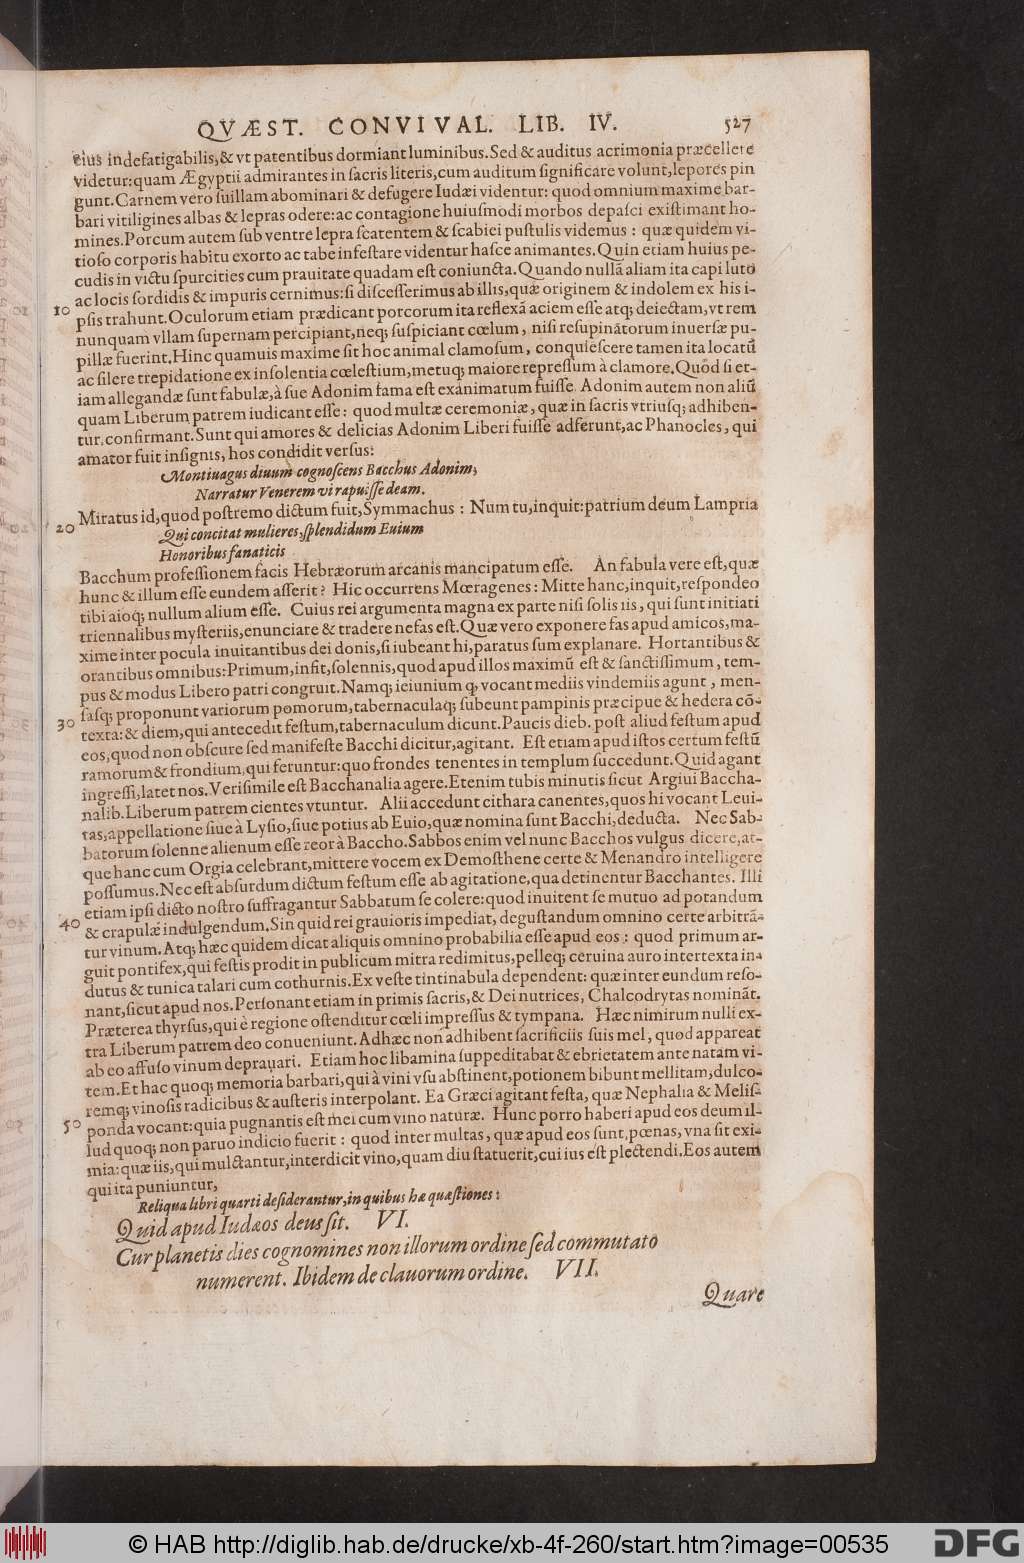 QVÆST. CONVIVAL. LIB. IV. 527
eius indefatigabilis,& vt patentibus dormiant luminibus.Sed & auditus acrimonia præcellere
videtur:quam Ægyptii admirantes in sacris literis,cum auditum significare volunt,lepores pin
gunt.Carnem vero suillam abominari & defugere Iudæi videntur: quod omnium maxime bar-
bari vitiligines albas & lepras odere:ac contagione huiusmodi morbos depasci existimant ho-
mines.Porcum autem sub ventre lepra scatentem & scabiei pustulis videmus : quæ quidem vi-
tioso corporis habitu exorto ac tabe infestare videntur hasce animantes.Quin etiam huius pe-
cudis in victu spurcities cum prauitate quadam est coniuncta.Quando nullã aliam ita capi luto
ac locis sordidis & impuris cernimus:si discesserimus ab illis,quæ originem & indolem ex his i-
10 psis trahunt.Oculorum etiam prædicant porcorum ita reflexã aciem esse atq; deiectam,vt rem
nunquam vllam supernam percipiant,neq; suspiciant cœlum, nisi resupinatorum inuersæ pu-
pillæ fuerint.Hinc quamuis maxime sit hoc animal clamosum, conquiescere tamen ita locatũ
ac silere trepidatione ex insolentia cœlestium,metuq; maiore repressum à clamore.Quod si et-
iam allegandæ sunt fabulæ,à sue Adonim fama est exanimatum fuisse. Adonim autem non aliũ
quam Liberum patrem iudicant esse: quod multæ ceremoniæ, quæ in sacris vtriusq; adhiben-
tur,confirmant.Sunt qui amores & delicias Adonim Liberi fuisse adferunt,ac Phanocles, qui
amator fuit insignis, hos condidit versus:
Montiuagus diuum cognoscens Bacchus Adonim,
Narratur Venerem vi rapuisse deam.
Miratus id,quod postremo dictum fuit,Symmachus : Num tu,inquit:patrium deum Lampria
20 Qui concitat mulieres,splendidum Euium
Honoribus fanaticis
Bacchum professionem facis Hebræorum arcanis mancipatum esse. An fabula vere est,quæ
hunc & illum esse eundem asserit? Hic occurrens Mœragenes : Mitte hanc,inquit,respondeo
tibi aioq; nullum alium esse. Cuius rei argumenta magna ex parte nisi solis iis, qui sunt initiati
triennalibus mysteriis,enunciare & tradere nefas est.Quæ vero exponere fas apud amicos,ma-
xime inter pocula inuitantibus dei donis,si iubeant hi,paratus sum explanare. Hortantibus &
orantibus omnibus:Primum,infit,solennis,quod apud illos maximũ est & sanctissimum, tem-
pus & modus Libero patri congruit.Namq; ieiunium q; vocant mediis vindemiis agunt, men-
sasq; proponunt variorum pomorum,tabernaculaq; subeunt pampinis præcipue & hedera cõ-
30 texta: & diem,qui antecedit festum,tabernaculum dicunt.Paucis dieb. post aliud festum apud
eos,quod non obscure sed manifeste Bacchi dicitur,agitant. Est etiam apud istos certum festũ
ramorum & frondium,qui feruntur:quo frondes tenentes in templum succedunt.Quid agant
ingressi,latet nos.Verisimile est Bacchanalia agere.Etenim tubis minutis sicut Argiui Baccha-
nalib.Liberum patrem cientes vtuntur. Alii accedunt cithara canentes,quos hi vocant Leui-
tas,appellatione siue à Lysio,siue potius ab Euio,quæ nomina sunt Bacchi,deducta. Nec Sab-
batorum solenne alienum esse reor à Baccho.Sabbos enim vel nunc Bacchos vulgus dicere,at-
que hanc cum Orgia celebrant,mittere vocem ex Demosthene certe & Menandro intelligere
possumus.Nec est absurdum dictum festum esse ab agitatione,qua detinentur Bacchantes. Illi
etiam ipsi dicto nostro suffragantur Sabbatum se colere:quod inuitent se mutuo ad potandum
40 & crapulæ indulgendum.Sin quid rei grauioris impediat, degustandum omnino certe arbitrã-
tur vinum.Atq; hæc quidem dicat aliquis omnino probabilia esse apud eos : quod primum ar-
guit pontifex,qui festis prodit in publicum mitra redimitus,pelleq; ceruina auro intertexta in-
dutus & tunica talari cum cothurnis.Ex veste tintinabula dependent: quæ inter eundum reso-
nant,sicut apud nos.Personant etiam in primis sacris,& Dei nutrices, Chalcodrytas nominãt.
Præterea thyrsus,qui è regione ostenditur cœli impressus & tympana. Hæc nimirum nulli ex-
tra Liberum patrem deo conueniunt.Adhæc non adhibent sacrificiis suis mel, quod appareat
ab eo affuso vinum deprauari. Etiam hoc libamina suppeditabat & ebrietatem ante natam vi-
tem.Et hac quoq; memoria barbari,qui à vini vsu abstinent,potionem bibunt mellitam,dulco-
remq; vinosis radicibus & austeris interpolant. Ea Græci agitant festa, quæ Nephalia & Melis-
50 ponda vocant:quia pugnantis est mei cum vino naturæ. Hunc porro haberi apud eos deum il-
lud quoq; non paruo indicio fuerit : quod inter multas, quæ apud eos sunt,pœnas, vna sit exi-
mia: quæ iis,qui mulctantur,interdicit vino,quam diu statuerit,cui ius est plectendi.Eos autem
qui ita puniuntur,
Reliqua libri quarti desiderantur,in quibus hæ quæstiones :
Quid apud Iudæos deus sit. VI.
Cur planetis dies cognomines non illorum ordine sed commutato
numerent. Ibidem de clauorum ordine. VII.
Quare
© HAB http://diglib.hab.de/drucke/xb-4f-260/start.htm?image=00535 DFG